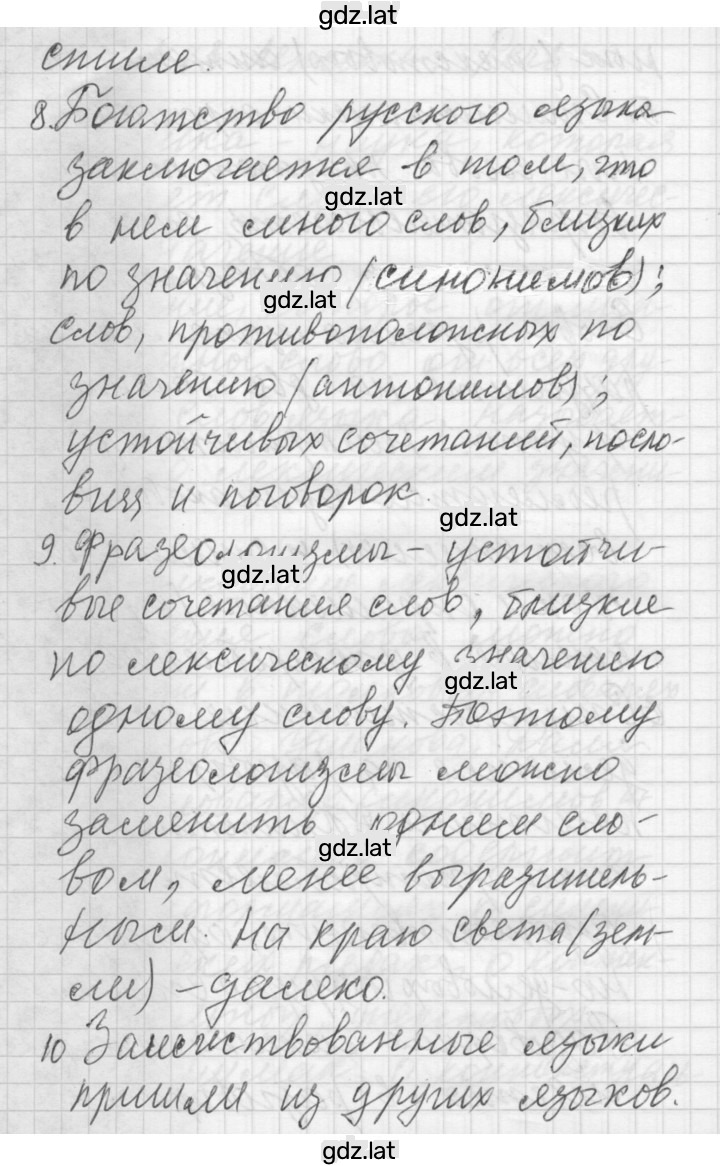 gdz.lat
стиле.
8. Богатство русского языка
заключается в том, что
gdz.lat
в нем много слов, близких
по значению (синонимов);
gdz.lat
слов, противоположных по
значению (антонимов);
устойчивых сочетаний, посло-
виц и поговорок.
gdz.lat
9. Фразеологизмы - устойчи-
gdz.lat
вые сочетания слов, близкие
по лексическому значению
gdz.lat
одному слову. Поэтому
фразеологизмы можно
заменить одним сло-
gdz.lat
вом, менее выразитель-
ным. На краю света (зем-
ли) - далеко.
10 Заимствованные языки
пришли из других языков.
gdz.lat